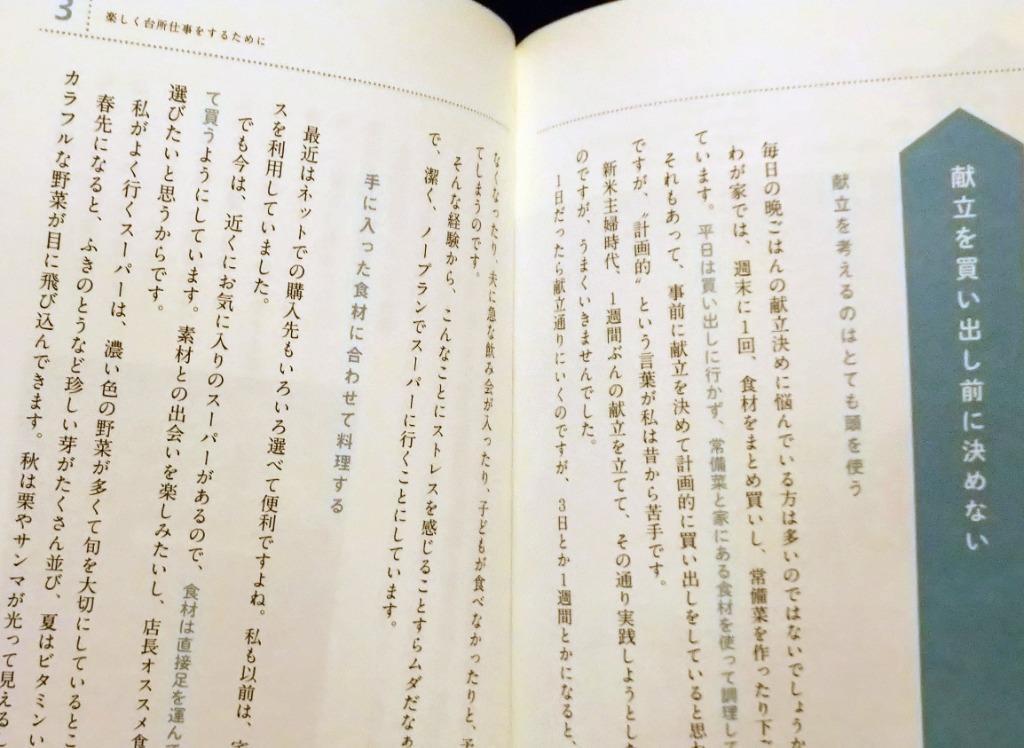 献立を買い出し前に決めない
献立を考えるのはとても頭を使う
毎日の晩ごはんの献立決めに悩んでいる方は多いのではないでしょうか
わが家では、週末に1回、食材をまとめ買いし、常備菜を作ったり下ご
ています。平日は買い出しに行かず、常備菜と家にある食材を使って調理して
それもあって、事前に献立を決めて計画的に買い出しをしていると思わ
ですが、〝計画的〟という言葉が私は昔から苦手です。
新米主婦時代、1週間ぶんの献立を立てて、その通り実践しようとした
のですが、うまくいきませんでした。
1日だったら献立通りにいくのですが、3日とか1週間とかになると、
なくなったり、夫に急な飲み会が入ったり、子どもが食べなかったりと、予
てしまうのです。
そんな経験から、こんなことにストレスを感じることすらムダだなぁ
で、潔く、ノープランでスーパーに行くことにしています。
3
楽しく台所仕事をするために
手に入った食材に合わせて料理する
最近はネットでの購入先もいろいろ選べて便利ですよね。私も以前は、宅
スを利用していました。
でも今は、近くにお気に入りのスーパーがあるので、食材は直接足を運んで
て買うようにしています。素材との出会いを楽しみたいし、店長オススメ食
選びたいと思うからです。
私がよく行くスーパーは、濃い色の野菜が多くて旬を大切にしているとこ
春先になると、ふきのとうなど珍しい芽がたくさん並び、夏はビタミンい
カラフルな野菜が目に飛び込んできます。秋は栗やサンマが光って見えるし